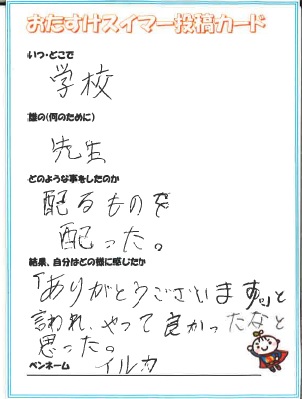 おたすけスイマー投稿カード
いつ・どこで
学校
誰の(何のために)
先生
どのような事をしたのか
配るものを
配った。
結果、自分はどの様に感じたか
「ありがとうございます。」と
言われ、やって良かったなと
思った。
ペンネーム イルカ